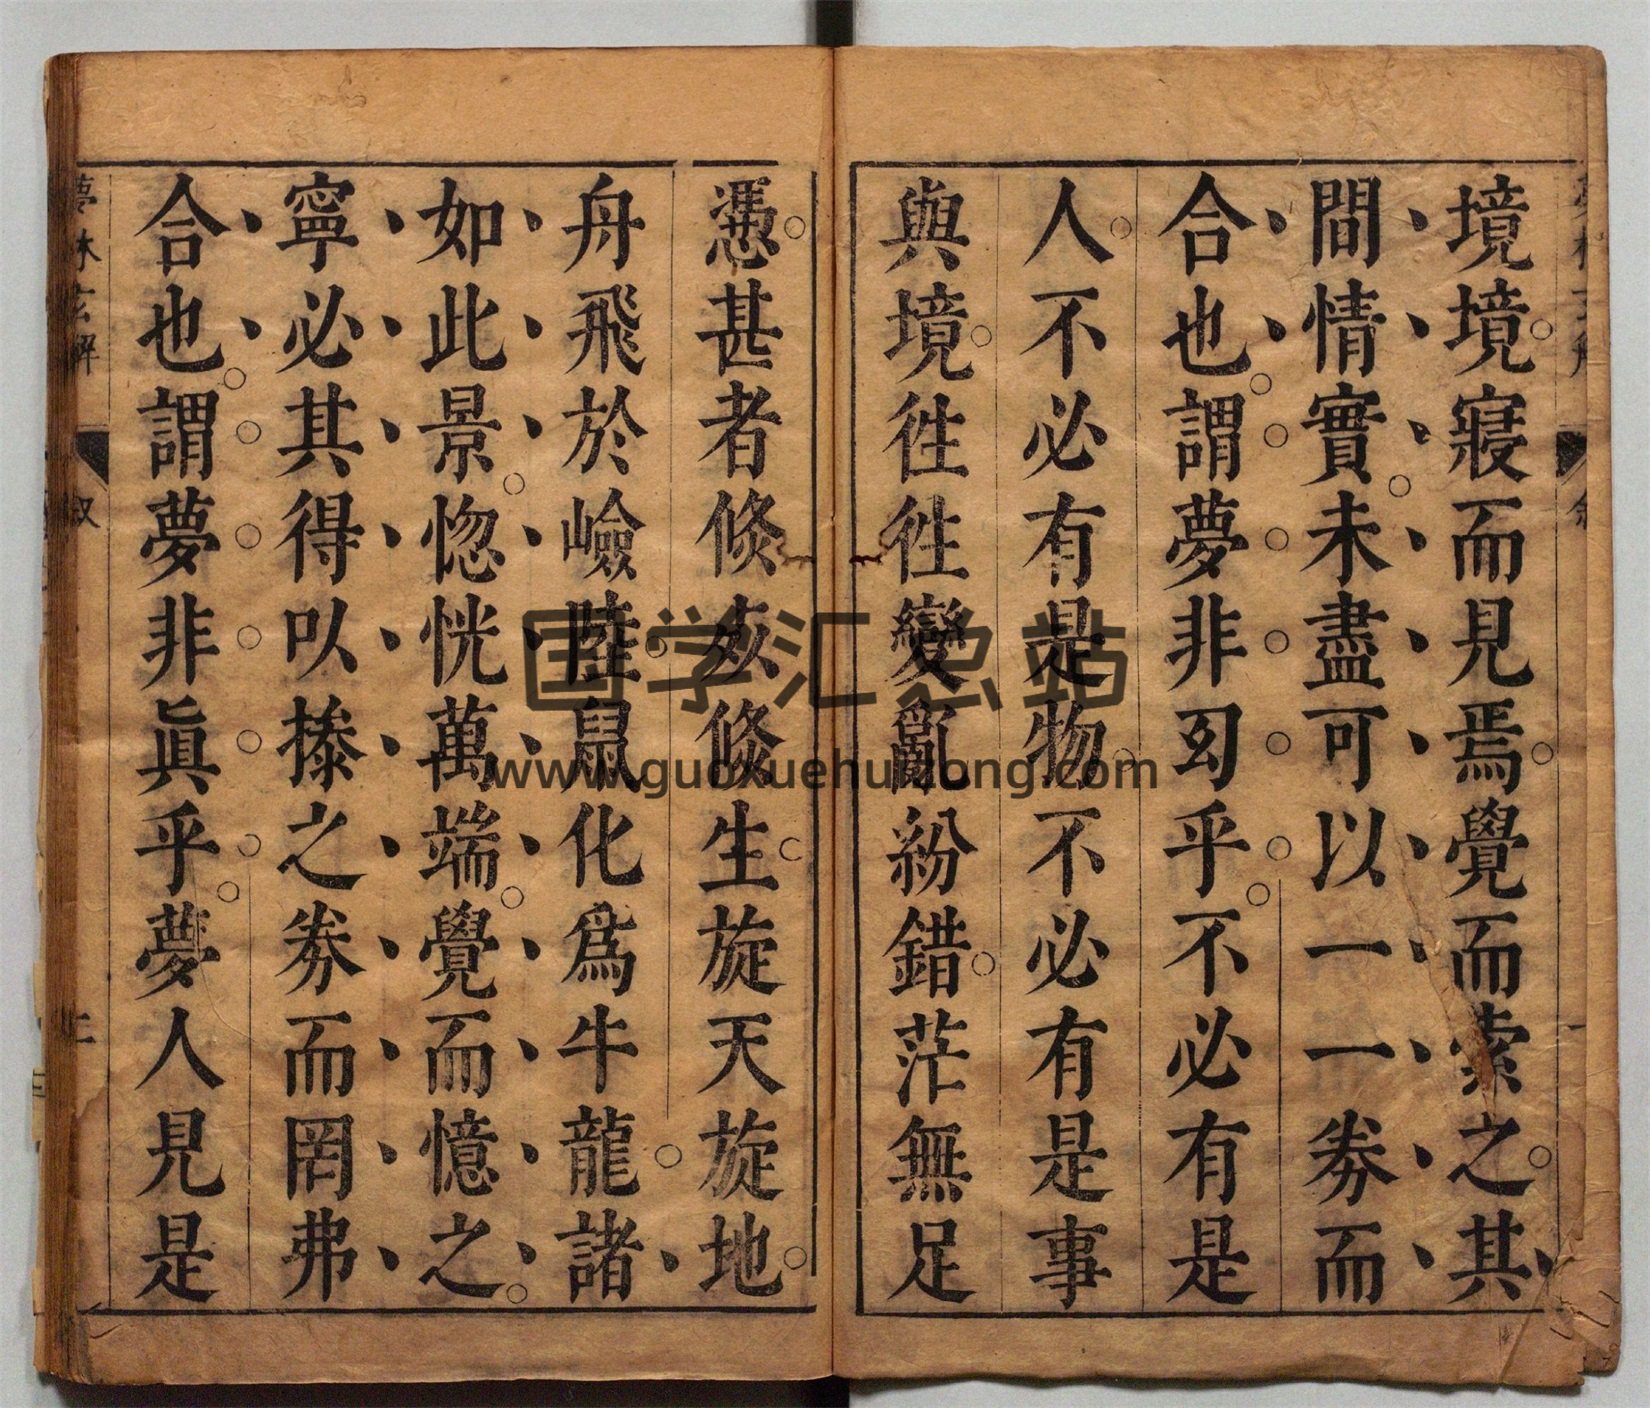 境境寢而見焉覺而索之其
間情實未盡可以一一券而
合也謂夢非幻乎不必有是
人不必有是物不必有是事
與境徃徃變亂紛錯茫無足
憑甚者倐夾倐生旋天旋地
舟飛於嶮陸鼠化爲牛龍諸
如此景惚恍萬端覺而憶之
寧必其得以摻之券而罔弗
合也謂夢非眞乎夢人見是
夢林玄解
叙
二
国学汇总站
www.guoxuehuizong.com